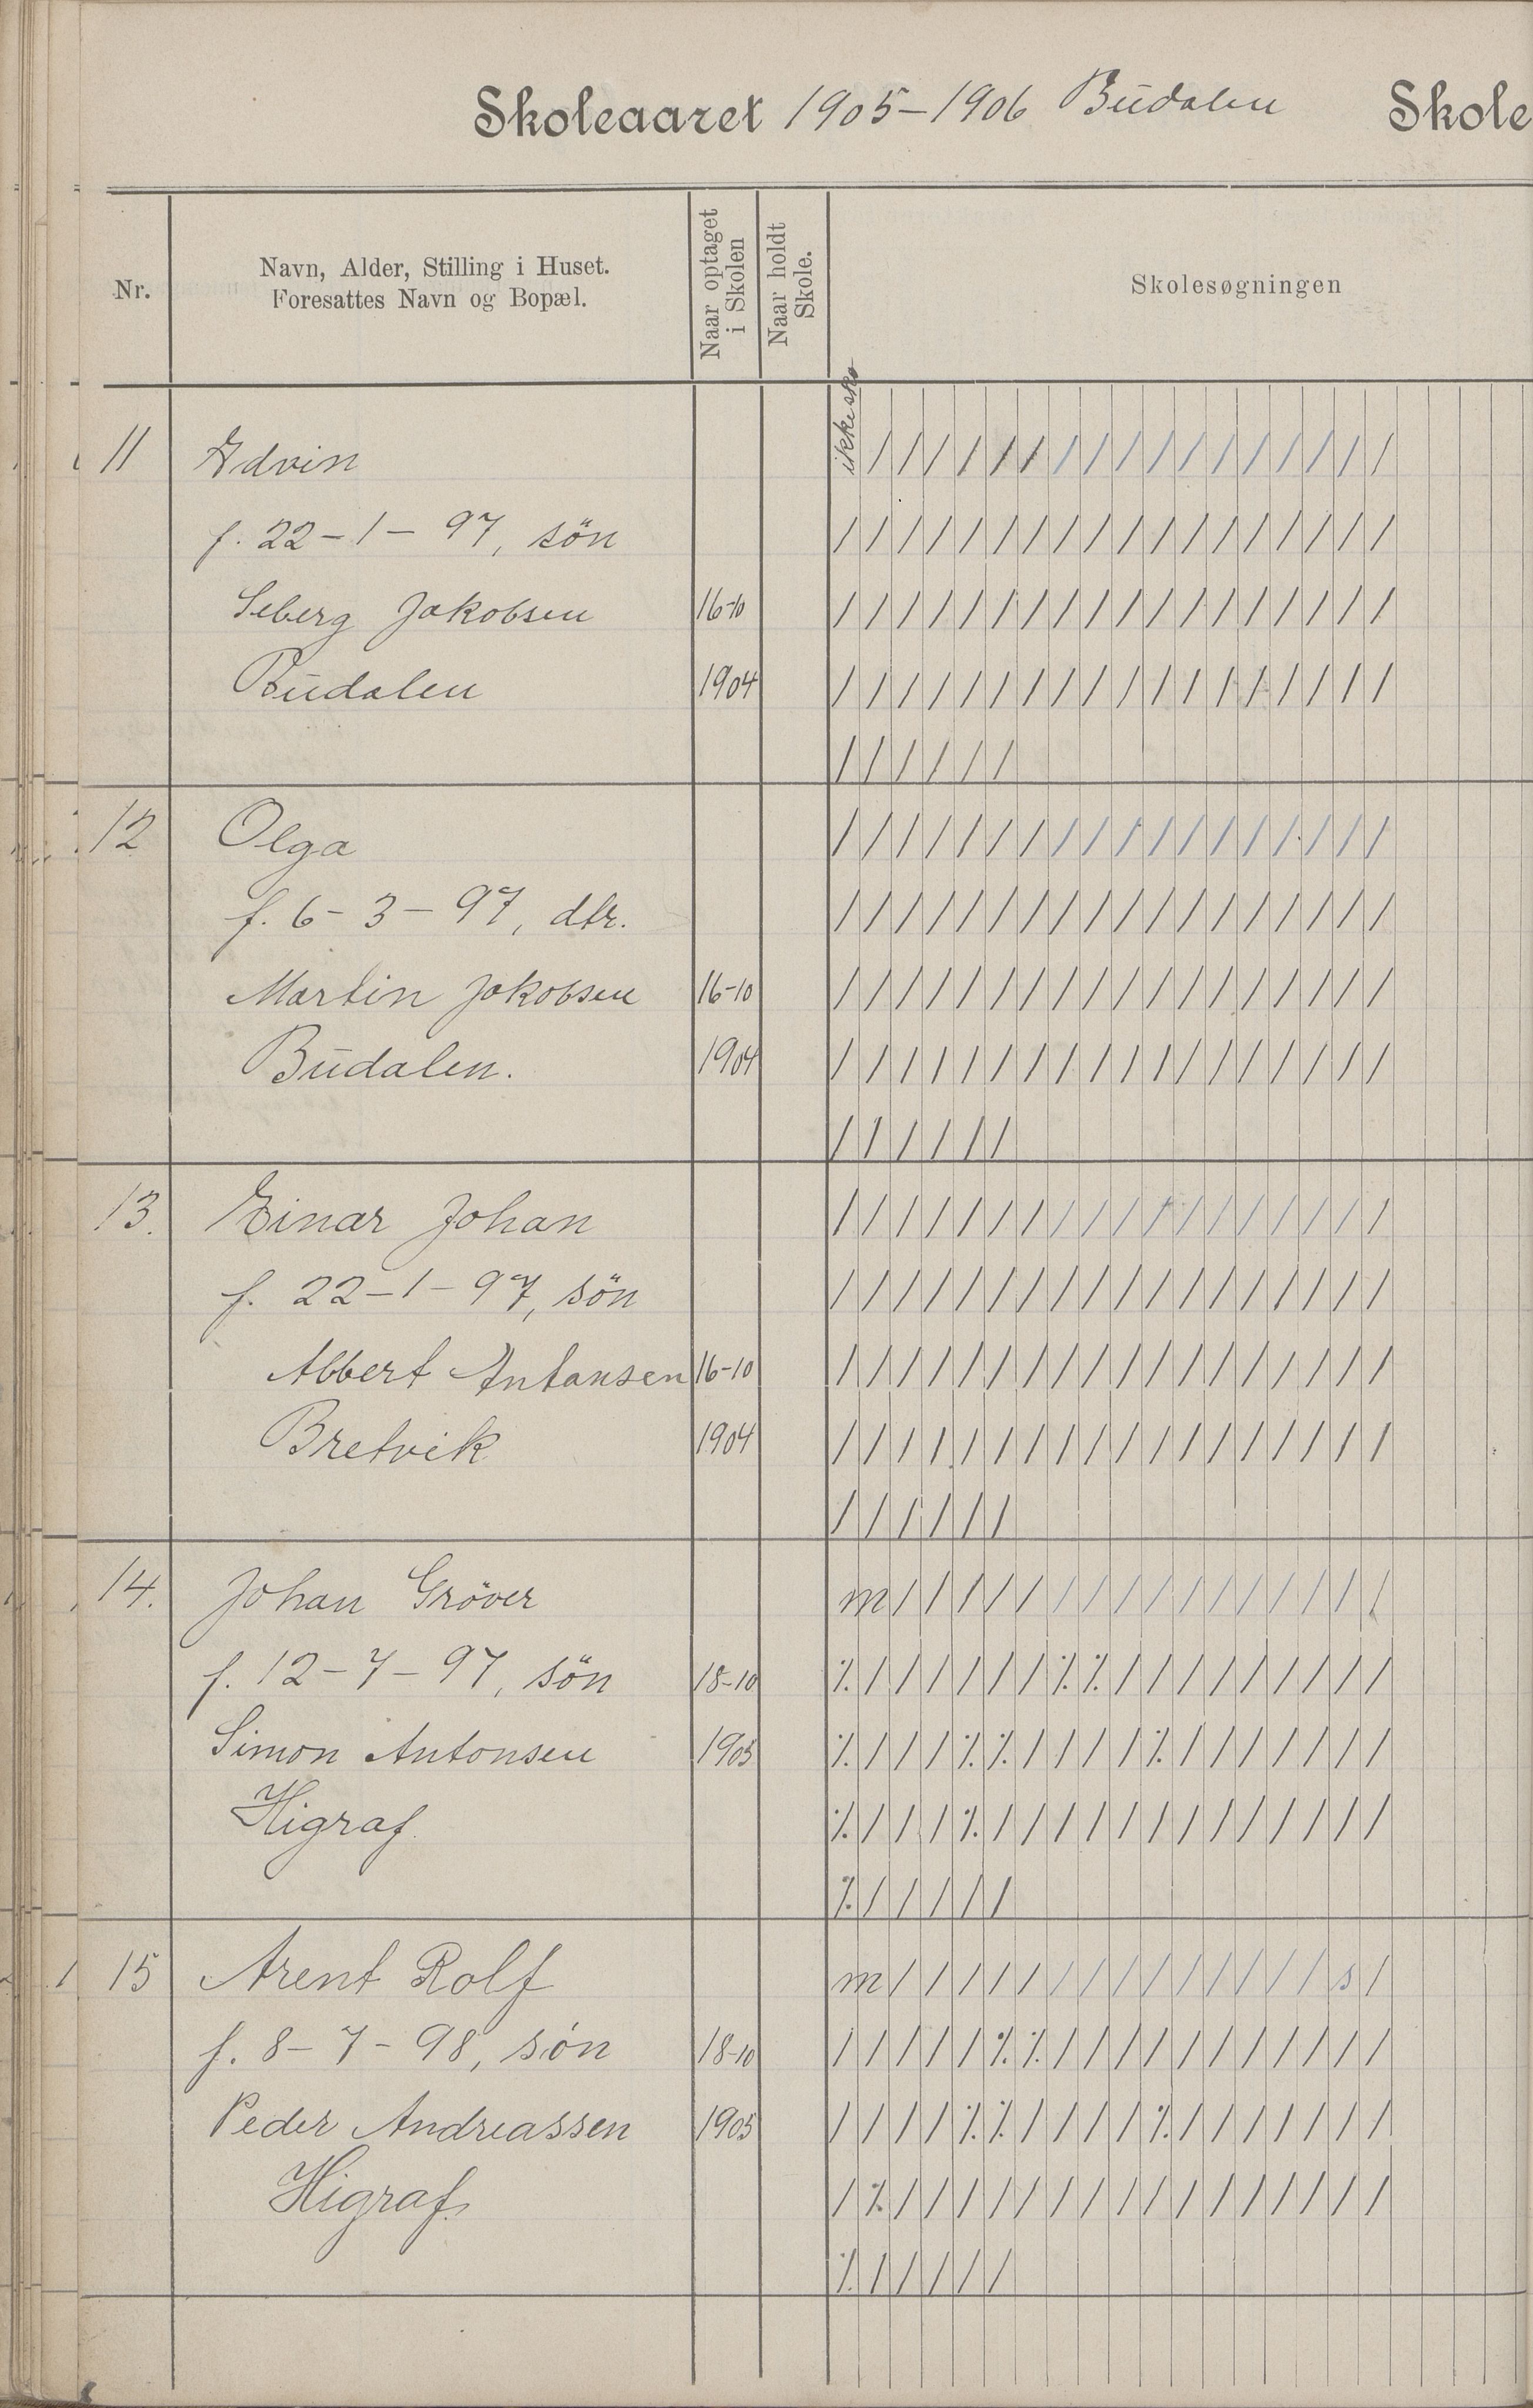 Skoleaaret 1905-1906 Bŭdalen Skole
Nr.
Navn, Alder, Stilling i Huset.
Foresattes Navn og Bopæl.
Naar optaget
i Skolen
Naar holdt
Skole.
Skolesøgningen
11 Edvin ikke sko / / / / / / / / / / / / / / / / /
f. 22-1-97, sön / / / / / / / / / / / / / / / / / /
Seberg Jakobsen 16-10 / / / / / / / / / / / / / / / / / /
Bŭdalen 1904 / / / / / / / / / / / / / / / / / /
/ / / / / /
12 Olga / / / / / / / / / / / / / / / / / /
f. 6-3-97, dtr. / / / / / / / / / / / / / / / / / /
Martin Jakobsen 16-10 / / / / / / / / / / / / / / / / / /
Bŭdalen. 1904 / / / / / / / / / / / / / / / / / /
/ / / / / /
13. Einar Johan / / / / / / / / / / / / / / / / / /
f. 22-1-97, sön / / / / / / / / / / / / / / / / / /
Albert Antonsen 16-10 / / / / / / / / / / / / / / / / / /
Bretvik 1904 / / / / / / / / / / / / / / / / / /
/ / / / / /
14. Johan Gröver m / / / / / / / / / / / / / / / /
f. 12-7-97, sön 18-10 ⁒ / / / / / / ⁒ ⁒ / / / / / / / / /
Simon Antonsen 1905 ⁒ / / / ⁒ ⁒ / / / / ⁒ / / / / / / /
Higraf ⁒ / / / ⁒ / / / / / / / / / / / / /
⁒ / / / / /
15 Arent Rolf m / / / / / / / / / / / / / / s /
f. 8-7-98, sön 18-10 / / / / / ⁒ ⁒ / / / / / / / / / / /
Peder Andreassen 1905 / / / / ⁒ ⁒ / / / / ⁒ / / / / / / /
Higraf. / ⁒ / / / / / / / / / / / / / / / /
⁒ / / / / /